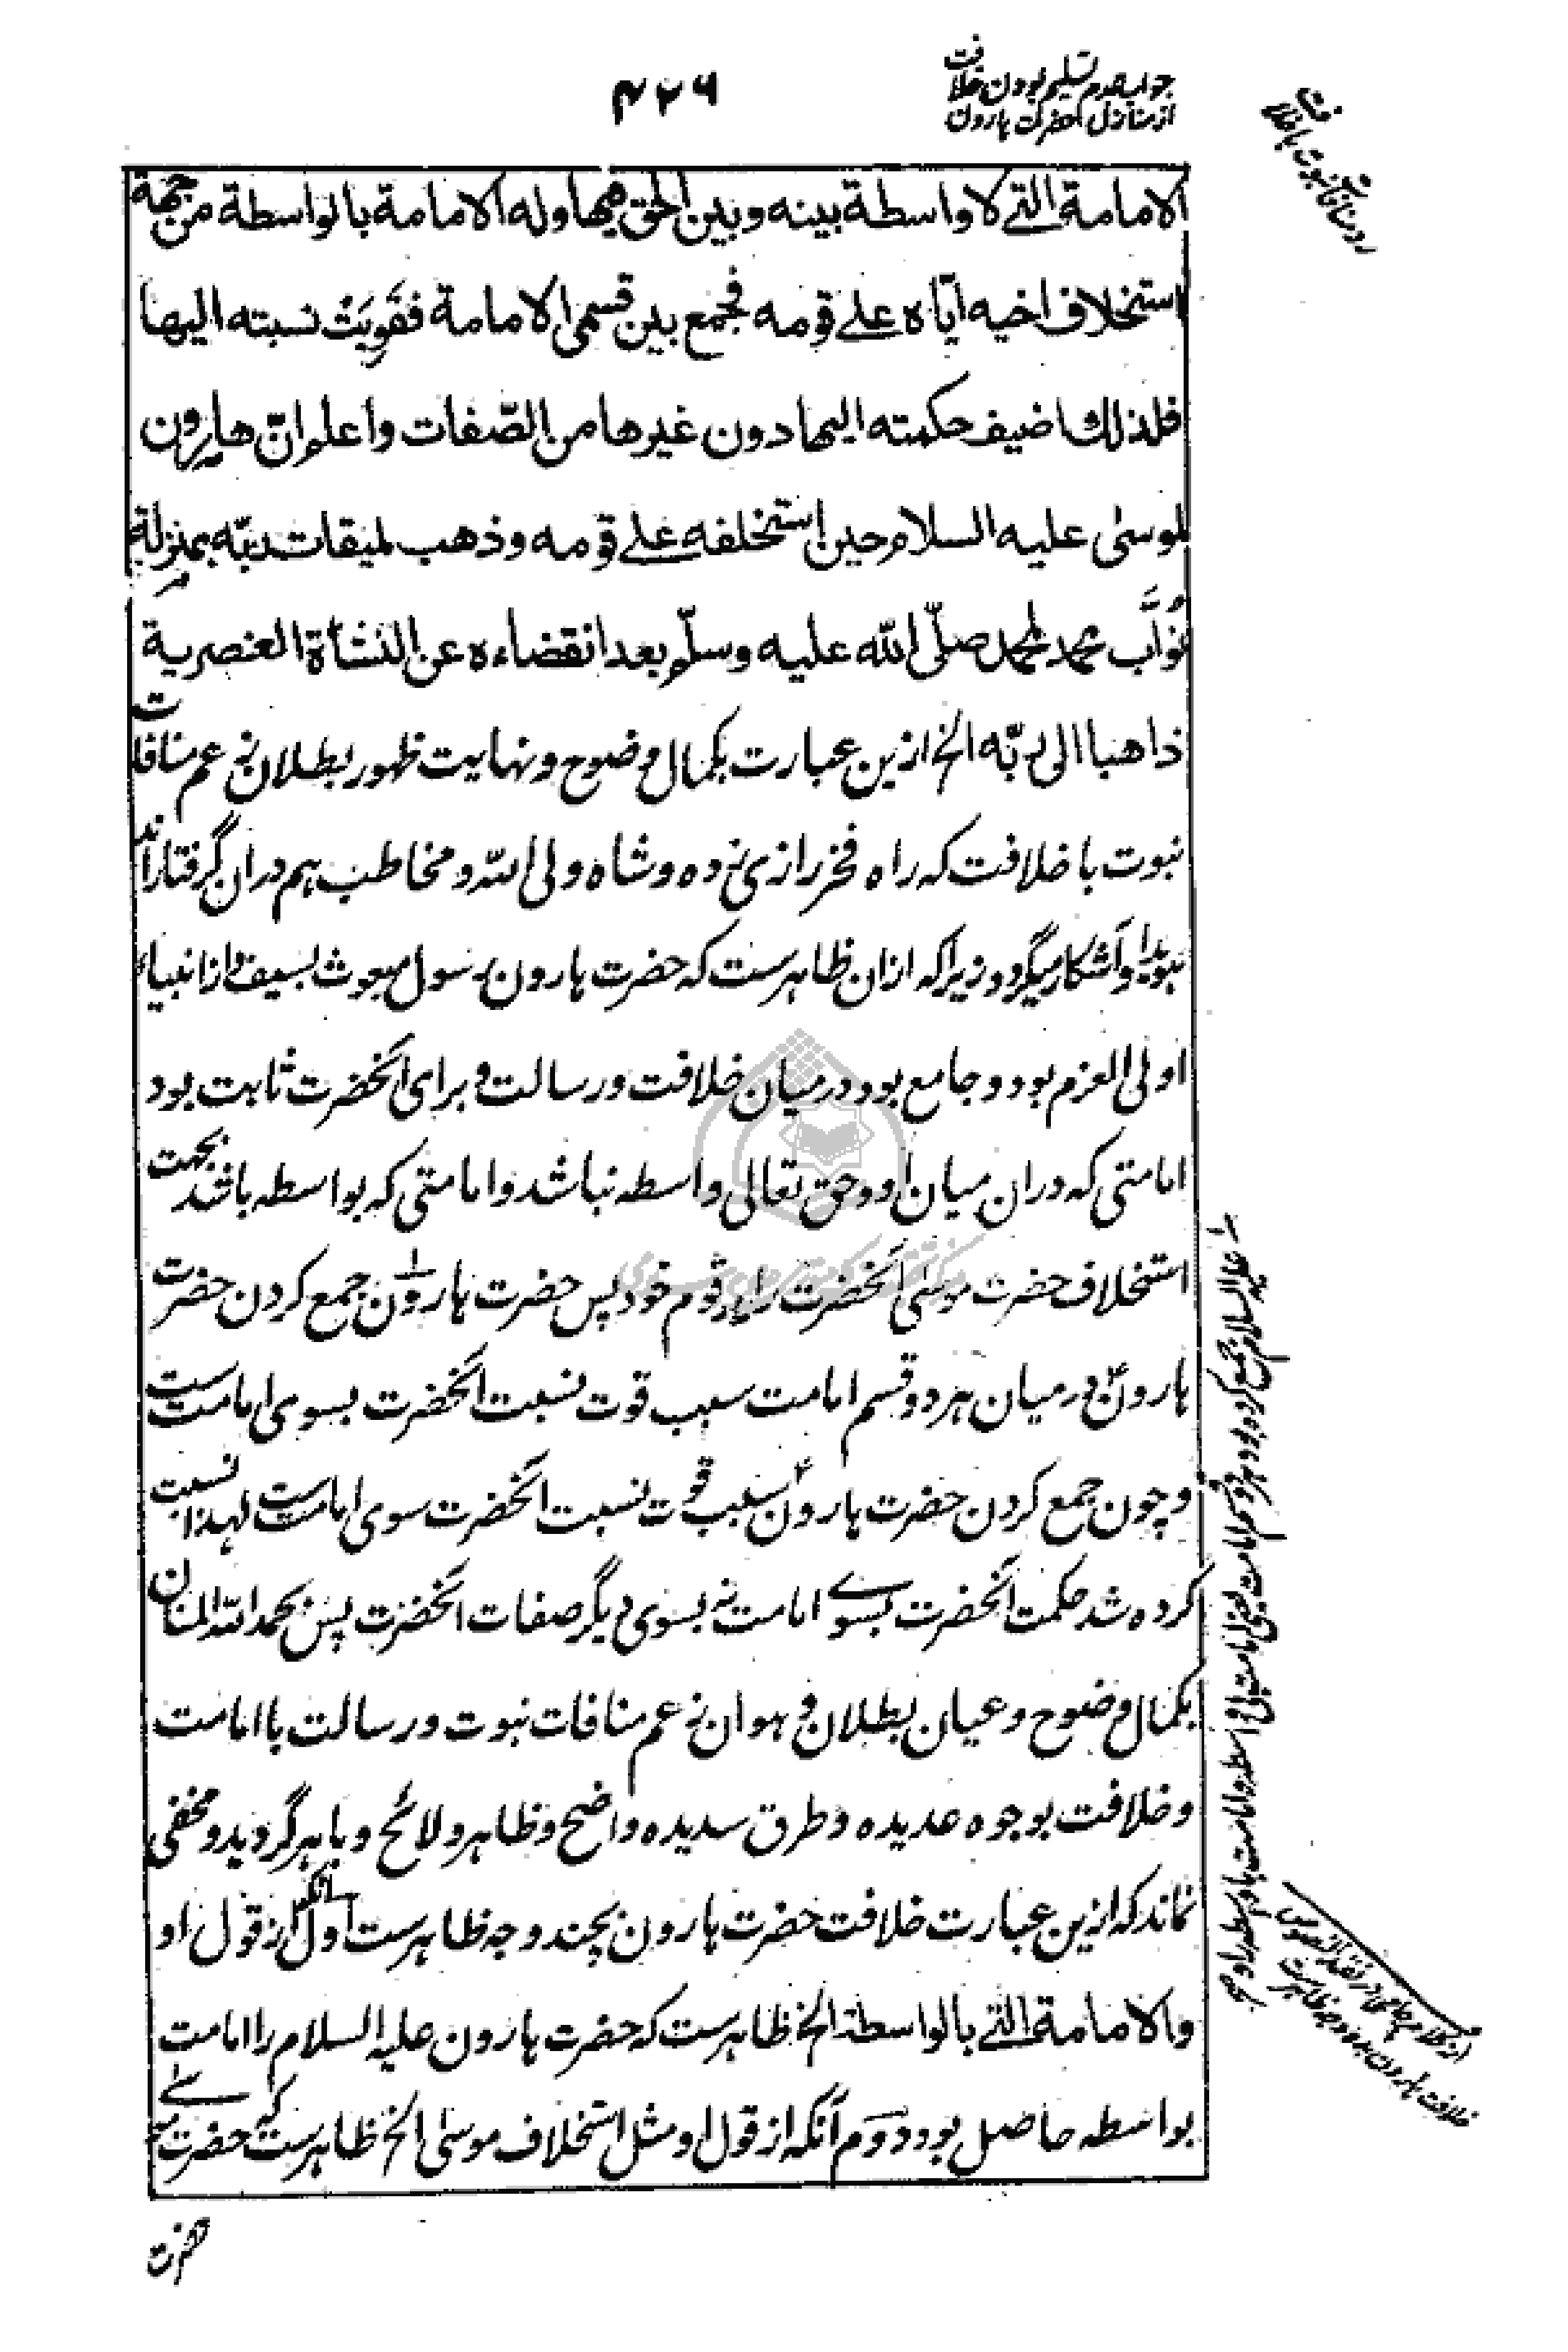 ۴۲۶
جواب عدم تسلیم بودن خلافت
از منازل حضرت هارون
رد منافات نبوت با خلافت
الامامة التے لا واسطة بینه وبین الحق فیها وله الامامة بالواسطة من جهة
استخلاف اخیه ایّاه علے قومه فجمع بین قسمی الامامة فقَوِیَتْ نسبته الیها
فلذلك اضیف حکمته الیها دون غیرها من الصّفات واعلم انّ هارون
لموسٰی علیه السلام حین استخلفه علے قومه وذهب لمیقات ربّه بمنزلة
نُوَّاب محمد لمحمد صلّی اللّٰه علیه وسلّم بعد انقضاءه عن النشأة العنصریة
ذاهبا الی ربّه الخ ازین عبارت بکمال وضوح ونهایت ظهور بطلان زعم منافات
نبوت با خلافت که راه فخر رازی زده وشاه ولی اللّٰه ومخاطب هم دران گرفتاراند
هویدا وآشکار میگردد زیراکه ازان ظاهرست که حضرت هارون رسول مبعوث بسیف واز انبیاء
اولی العزم بود وجامع بود درمیان خلافت ورسالت وبرای آنحضرت ثابت بود
امامتی که دران میان او وحق تعالی واسطه نباشد وامامتی که بواسطه باشد بجهت
استخلاف حضرت موسٰی آنحضرت را بر قوم خود پس حضرت هارون جمع کردن حضرت
هارونؑ درمیان هر دو قسم امامت سبب قوت نسبت آنحضرت بسوی امامت ست
وچون جمع کردن حضرت هارونؑ سبب قوت نسبت آنحضرت سوی امامت ست لهذا نسبت
کرده شد حکمت آنحضرت بسوے امامت نه بسوی دیگر صفات آنحضرت پس بحمد اللّٰه المنان
بکمال وضوح وعیان بطلان وهوان زعم منافات نبوت ورسالت با امامت
وخلافت بوجوه عدیده وطرق سدیده واضح وظاهر ولائح وباهر گردید ومخفی
نماند که ازین عبارت خلافت حضرت هارون بچند وجه ظاهرست اول آنکه از قول او
والامامة التے بالواسطة الخ ظاهرست که حضرت هارون علیه السلام را امامت
بواسطه حاصل بود دوم آنکه از قول او مثل استخلاف موسٰی الخ ظاهرست که حضرت موسٰے
علیه السلام جمع کرده بود هر دو قسم امامت یعنی امامت بلا واسطه وامامت بالواسطه را
از کلام جامی در نقد النصوص
خلافت هارون بچند وجه ظاهرست